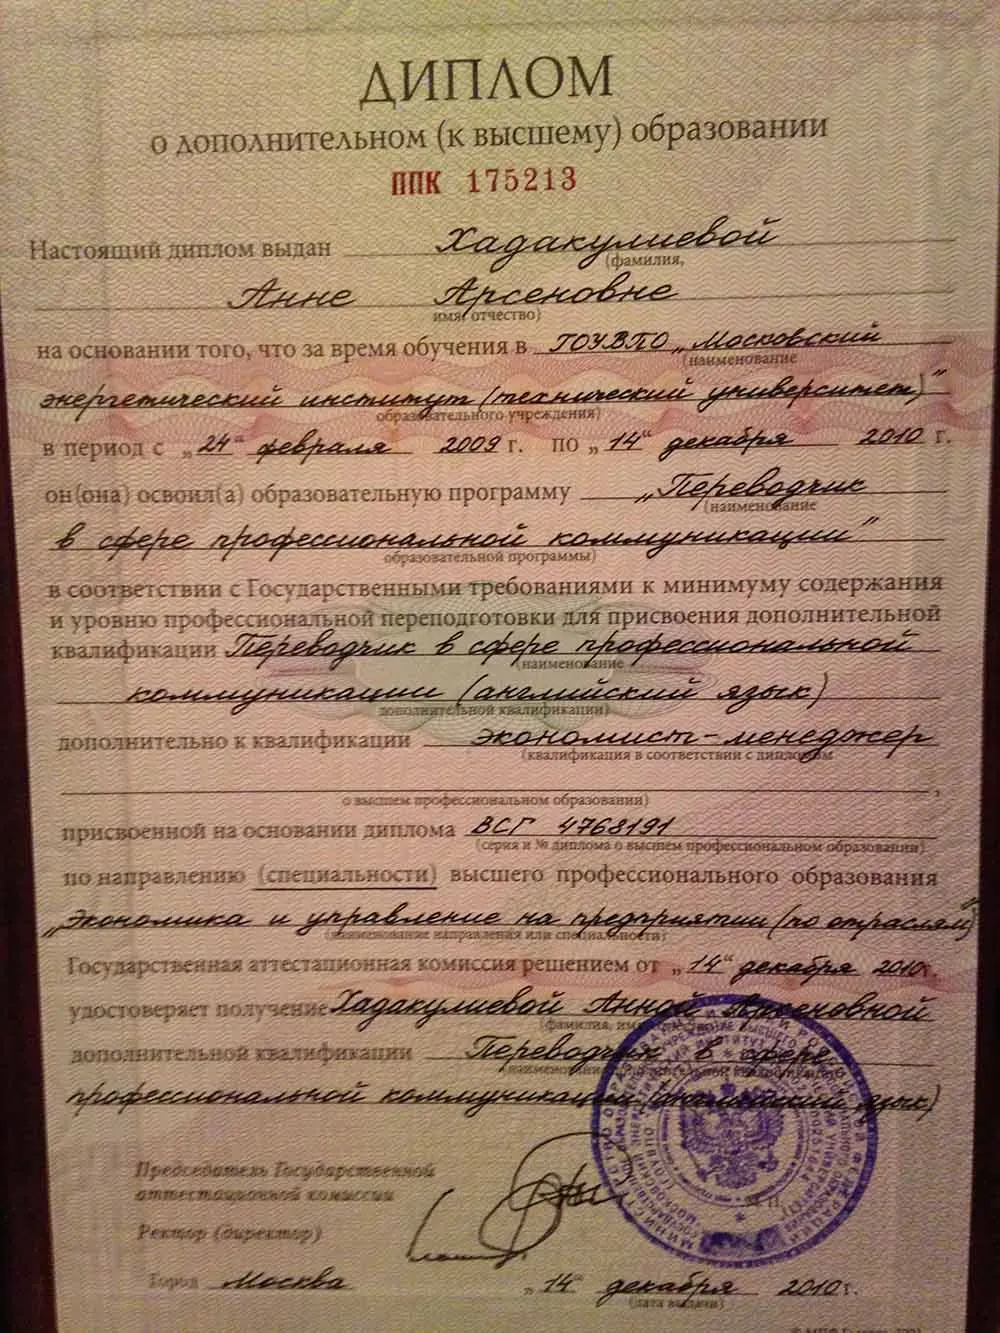 ДИПЛОМ
о дополнительном (к высшему) образовании
ППК 175213
Настоящий диплом выдан Хадакулиевой
(фамилия,
Анне Арсеновне
имя, отчество)
на основании того, что за время обучения в ГОУВПО „Московский
(наименование
энергетический институт (технический университет)"
образовательного учреждения)
в период с „24“ февраля 2009 г. по „14“ декабря 2010 г.
он(она) освоил(а) образовательную программу „Переводчик
(наименование
в сфере профессиональной коммуникации"
образовательной программы)
в соответствии с Государственными требованиями к минимуму содержания
и уровню профессиональной переподготовки для присвоения дополнительной
квалификации Переводчик в сфере профессиональной
(наименование
коммуникации (английский язык)
дополнительной квалификации)
дополнительно к квалификации экономист-менеджер
(квалификация в соответствии с дипломом
,
о высшем профессиональном образовании)
присвоенной на основании диплома ВСГ 4768191
(серия и № диплома о высшем профессиональном образовании)
по направлению (специальности) высшего профессионального образования
„Экономика и управление на предприятии (по отраслям)"
(наименование направления или специальности)
Государственная аттестационная комиссия решением от „14“ декабря 2010г.
удостоверяет получение Хадакулиевой Анной Арсеновной
(фамилия, имя,
дополнительной квалификации Переводчик в сфере
профессиональной коммуникации (английский язык)
Председатель Государственной
аттестационной комиссии
Ректор (директор)
Город Москва „14“ декабря 2010г.
(дата выдачи)